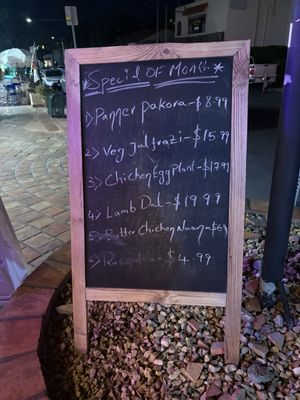 *Special OF Month*
1) Panner pakora - $8.99
2) Veg Jalfrazi - $15.99
3) Chicken Egg Plant - $17.99
4) Lamb Dal - $19.99
5) Chicken Naan - $6
$4.99